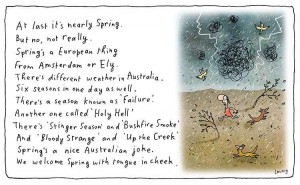 At last it's nearly Spring.
But no, not really.
Spring's a European thing
From Amsterdam or Ely.
There's different weather in Australia,
Six seasons in one day as well.
There's a season known as 'Failure'
Another one called 'Holy Hell'
There's 'Stinger Season' and 'Bushfire Smoke'
And 'Bloody Strange' and 'Up the Creek'
Spring's a nice Australian joke.
We welcome Spring with tongue in cheek.
Leunig